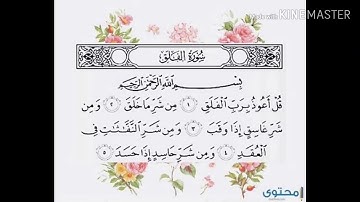 Made with KINEMASTER
سُورَةُ الفَلَقِ
بِسْمِ اللَّهِ الرَّحْمَٰنِ الرَّحِيمِ
قُلْ أَعُوذُ بِرَبِّ ٱلْفَلَقِ ١ مِن شَرِّ مَا خَلَقَ ٢ وَمِن
شَرِّ غَاسِقٍ إِذَا وَقَبَ ٣ وَمِن شَرِّ ٱلنَّفَّٰثَٰتِ فِي
ٱلْعُقَدِ ٤ وَمِن شَرِّ حَاسِدٍ إِذَا حَسَدَ ٥
محتوى